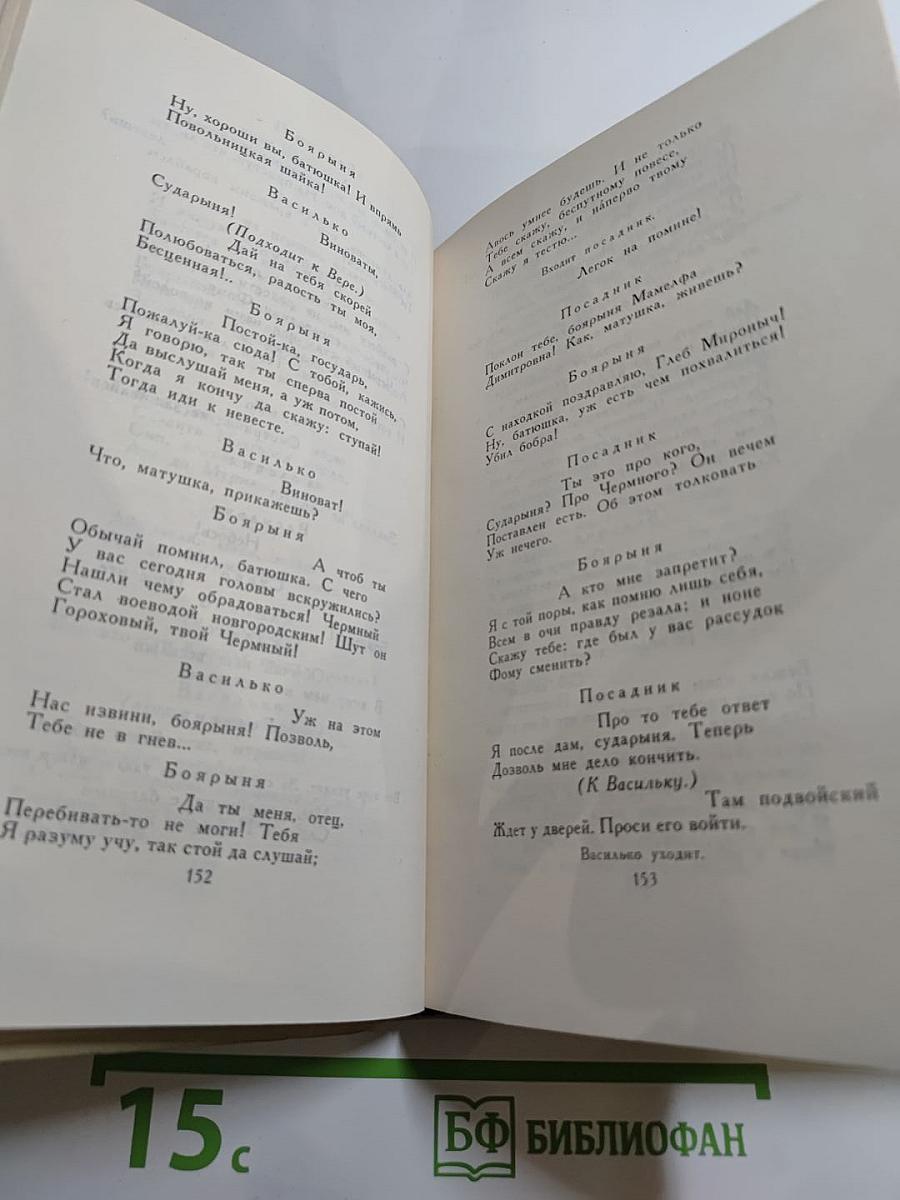 Боярыня
Ну, хороши вы, батюшка! И впрямь
Повольницкая шайка!
Василько
Виноваты,
Сударыня!
(Подходит к Вере.)
Дай на тебя скорей
Полюбоваться, радость ты моя,
Бесценная!..
Боярыня
Постой-ка, государь,
Пожалуй-ка сюда! С тобой, кажись,
Я говорю, так ты сперва постой
Да выслушай меня, а уж потом,
Когда я кончу да скажу: ступай!
Тогда иди к невесте.
Василько
Виноват!
Что, матушка, прикажешь?
Боярыня
А чтоб ты
Обычай помнил, батюшка. С чего
У вас сегодня головы вскружились?
Нашли чему обрадоваться! Чермный
Стал воеводой новгородским! Шут он
Гороховый, твой Чермный!
Василько
Уж на этом
Нас извини, боярыня! Позволь,
Тебе не в гнев...
Боярыня
Да ты меня, отец,
Перебивать-то не моги! Тебя
Я разуму учу, так стой да слушай;
152
Авось умнее будешь. И не только
Тебе скажу, беспутному повесе,
А всем скажу, и на́перво твому
Скажу я тестю...
Входит посадник.
Легок на помине!
Посадник
Поклон тебе, боярыня Мамелфа
Димитровна! Как, матушка, живешь?
Боярыня
С находкой поздравляю, Глеб Мироныч!
Ну, батюшка, уж есть чем похвалиться!
Убил бобра!
Посадник
Ты это про кого,
Сударыня? Про Чермного? Он вечем
Поставлен есть. Об этом толковать
Уж нечего.
Боярыня
А кто мне запретит?
Я с той поры, как помню лишь себя,
Всем в очи правду резала; и ноне
Скажу тебе: где был у вас рассудок
Фому сменить?
Посадник
Про то тебе ответ
Я после дам, сударыня. Теперь
Дозволь мне дело кончить.
(К Васильку.)
Там подвойский
Ждет у дверей. Проси его войти.
Василько уходит.
153
15 с
БФ БИБЛИОФАН